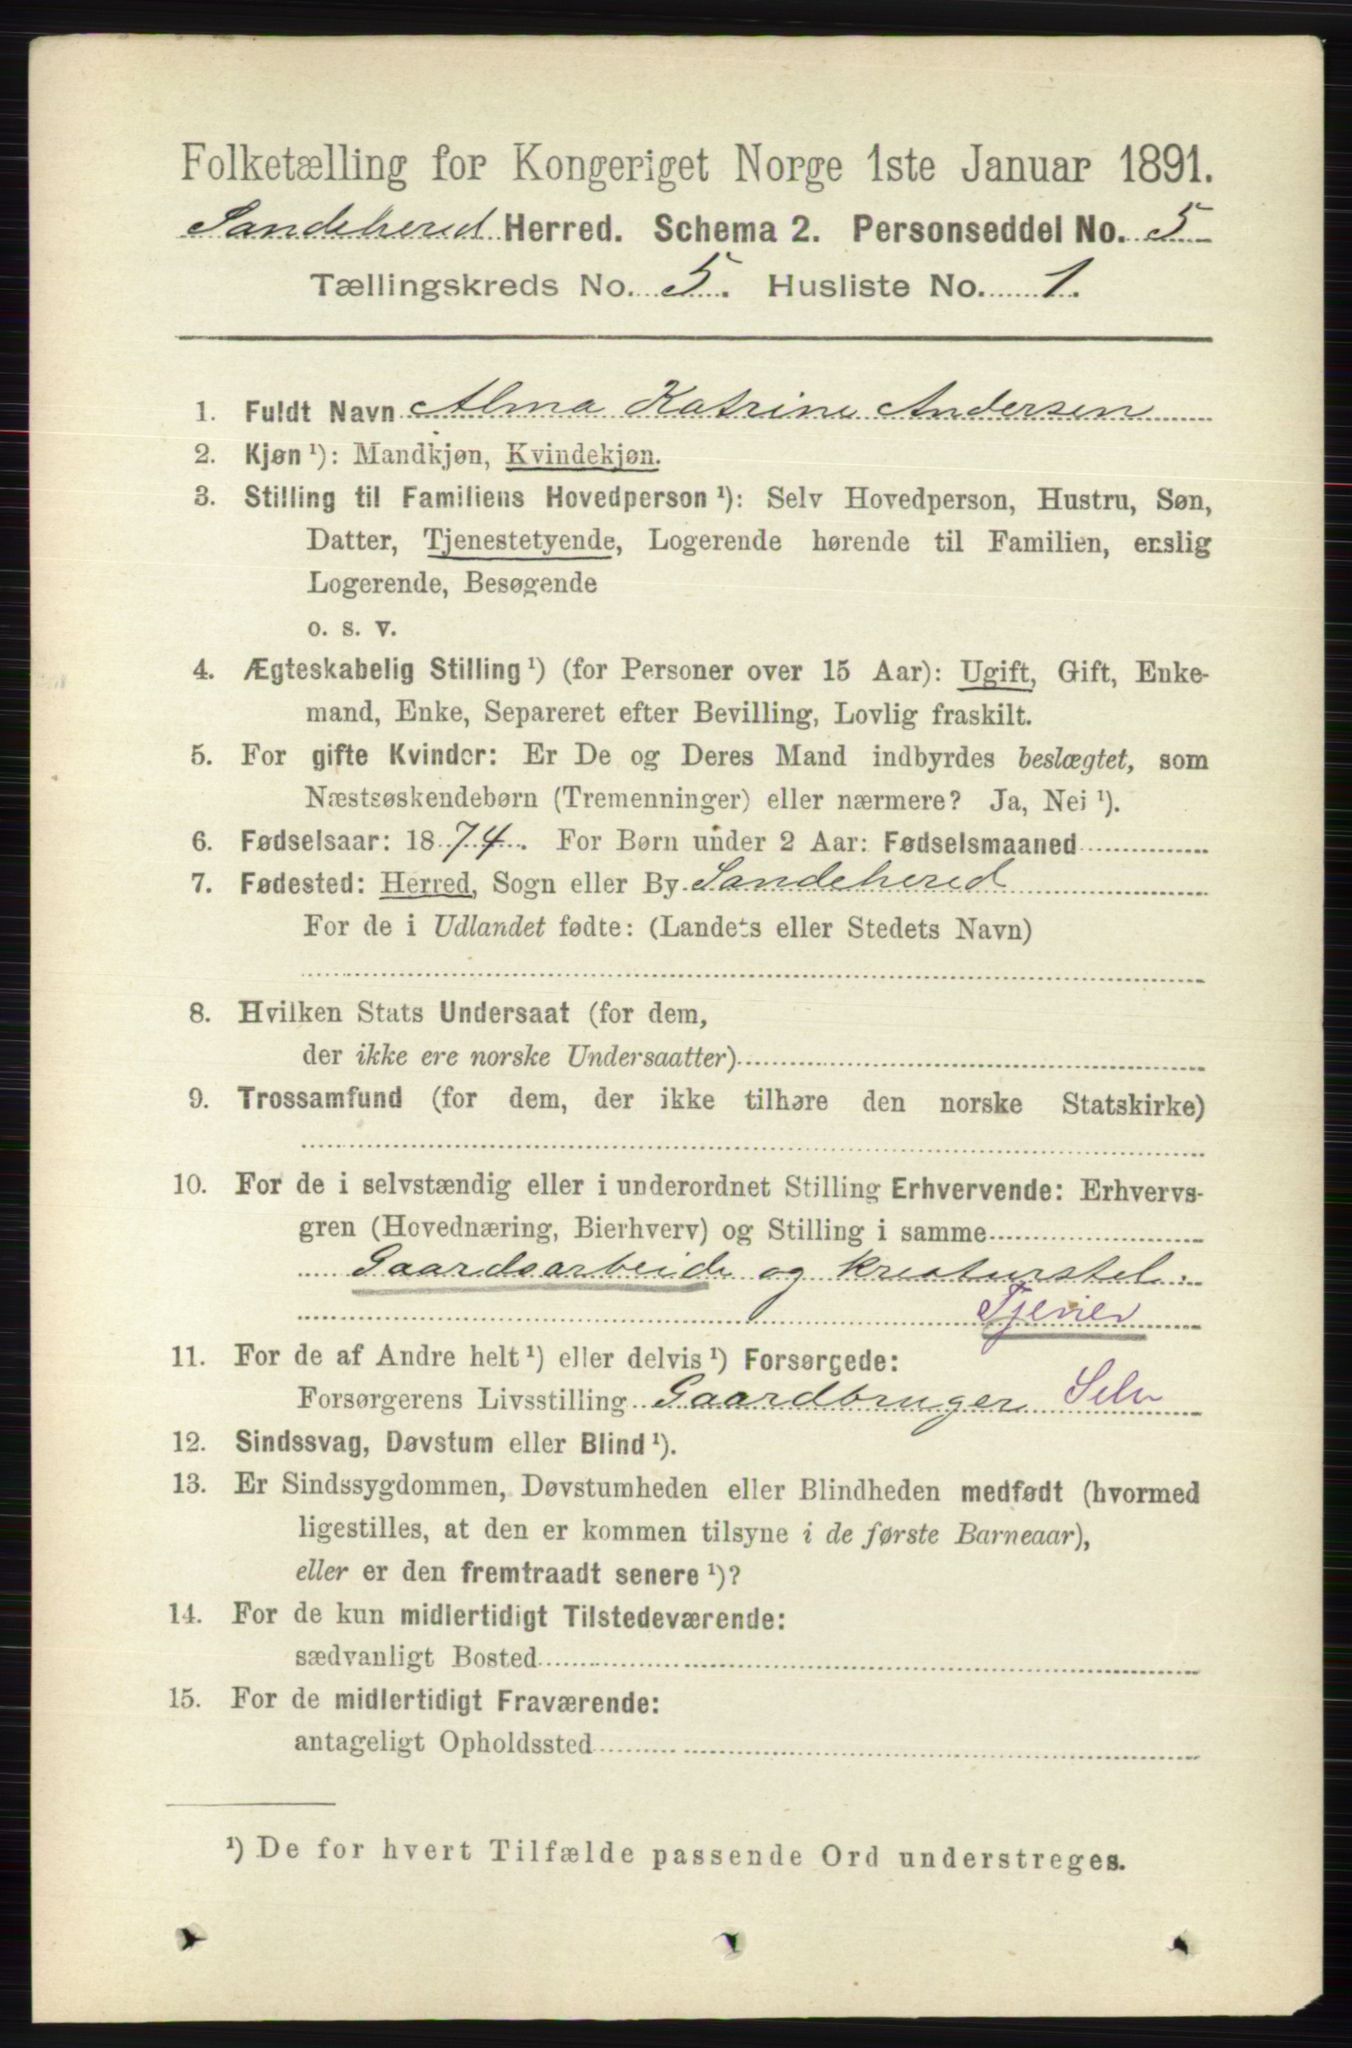 Folketælling for Kongeriget Norge 1ste Januar 1891.
Sandeherred Herred. Schema 2. Personseddel No. 5
Tællingskreds No. 5. Husliste No. 1.
1. Fuldt Navn Alma Katrine Andersen
2. Kjøn ¹): Mandkjøn, Kvindekjøn.
3. Stilling til Familiens Hovedperson ¹): Selv Hovedperson, Hustru, Søn,
Datter, Tjenestetyende, Logerende hørende til Familien, enslig
Logerende, Besøgende
o. s. v.
4. Ægteskabelig Stilling ¹) (for Personer over 15 Aar): Ugift, Gift, Enke-
mand, Enke, Separeret efter Bevilling, Lovlig fraskilt.
5. For gifte Kvinder: Er De og Deres Mand indbyrdes beslægtet, som
Næstsøskendebørn (Tremenninger) eller nærmere? Ja, Nei ¹).
6. Fødselsaar: 1874. For Børn under 2 Aar: Fødselsmaaned
7. Fødested: Herred, Sogn eller By Sandehered
For de i Udlandet fødte: (Landets eller Stedets Navn)
8. Hvilken Stats Undersaat (for dem,
der ikke ere norske Undersaatter)
9. Trossamfund (for dem, der ikke tilhøre den norske Statskirke)
10. For de i selvstændig eller i underordnet Stilling Erhvervende: Erhvervs-
gren (Hovednæring, Bierhverv) og Stilling i samme
Gaardsarbeide og kreaturstel.
Tjener
11. For de af Andre helt ¹) eller delvis ¹) Forsørgede:
Forsørgerens Livsstilling Gaardbruger Selv
12. Sindssvag, Døvstum eller Blind ¹).
13. Er Sindssygdommen, Døvstumheden eller Blindheden medfødt (hvormed
ligestilles, at den er kommen tilsyne i de første Barneaar),
eller er den fremtraadt senere ¹)?
14. For de kun midlertidigt Tilstedeværende:
sædvanligt Bosted
15. For de midlertidigt Fraværende:
antageligt Opholdssted
¹) De for hvert Tilfælde passende Ord understreges.